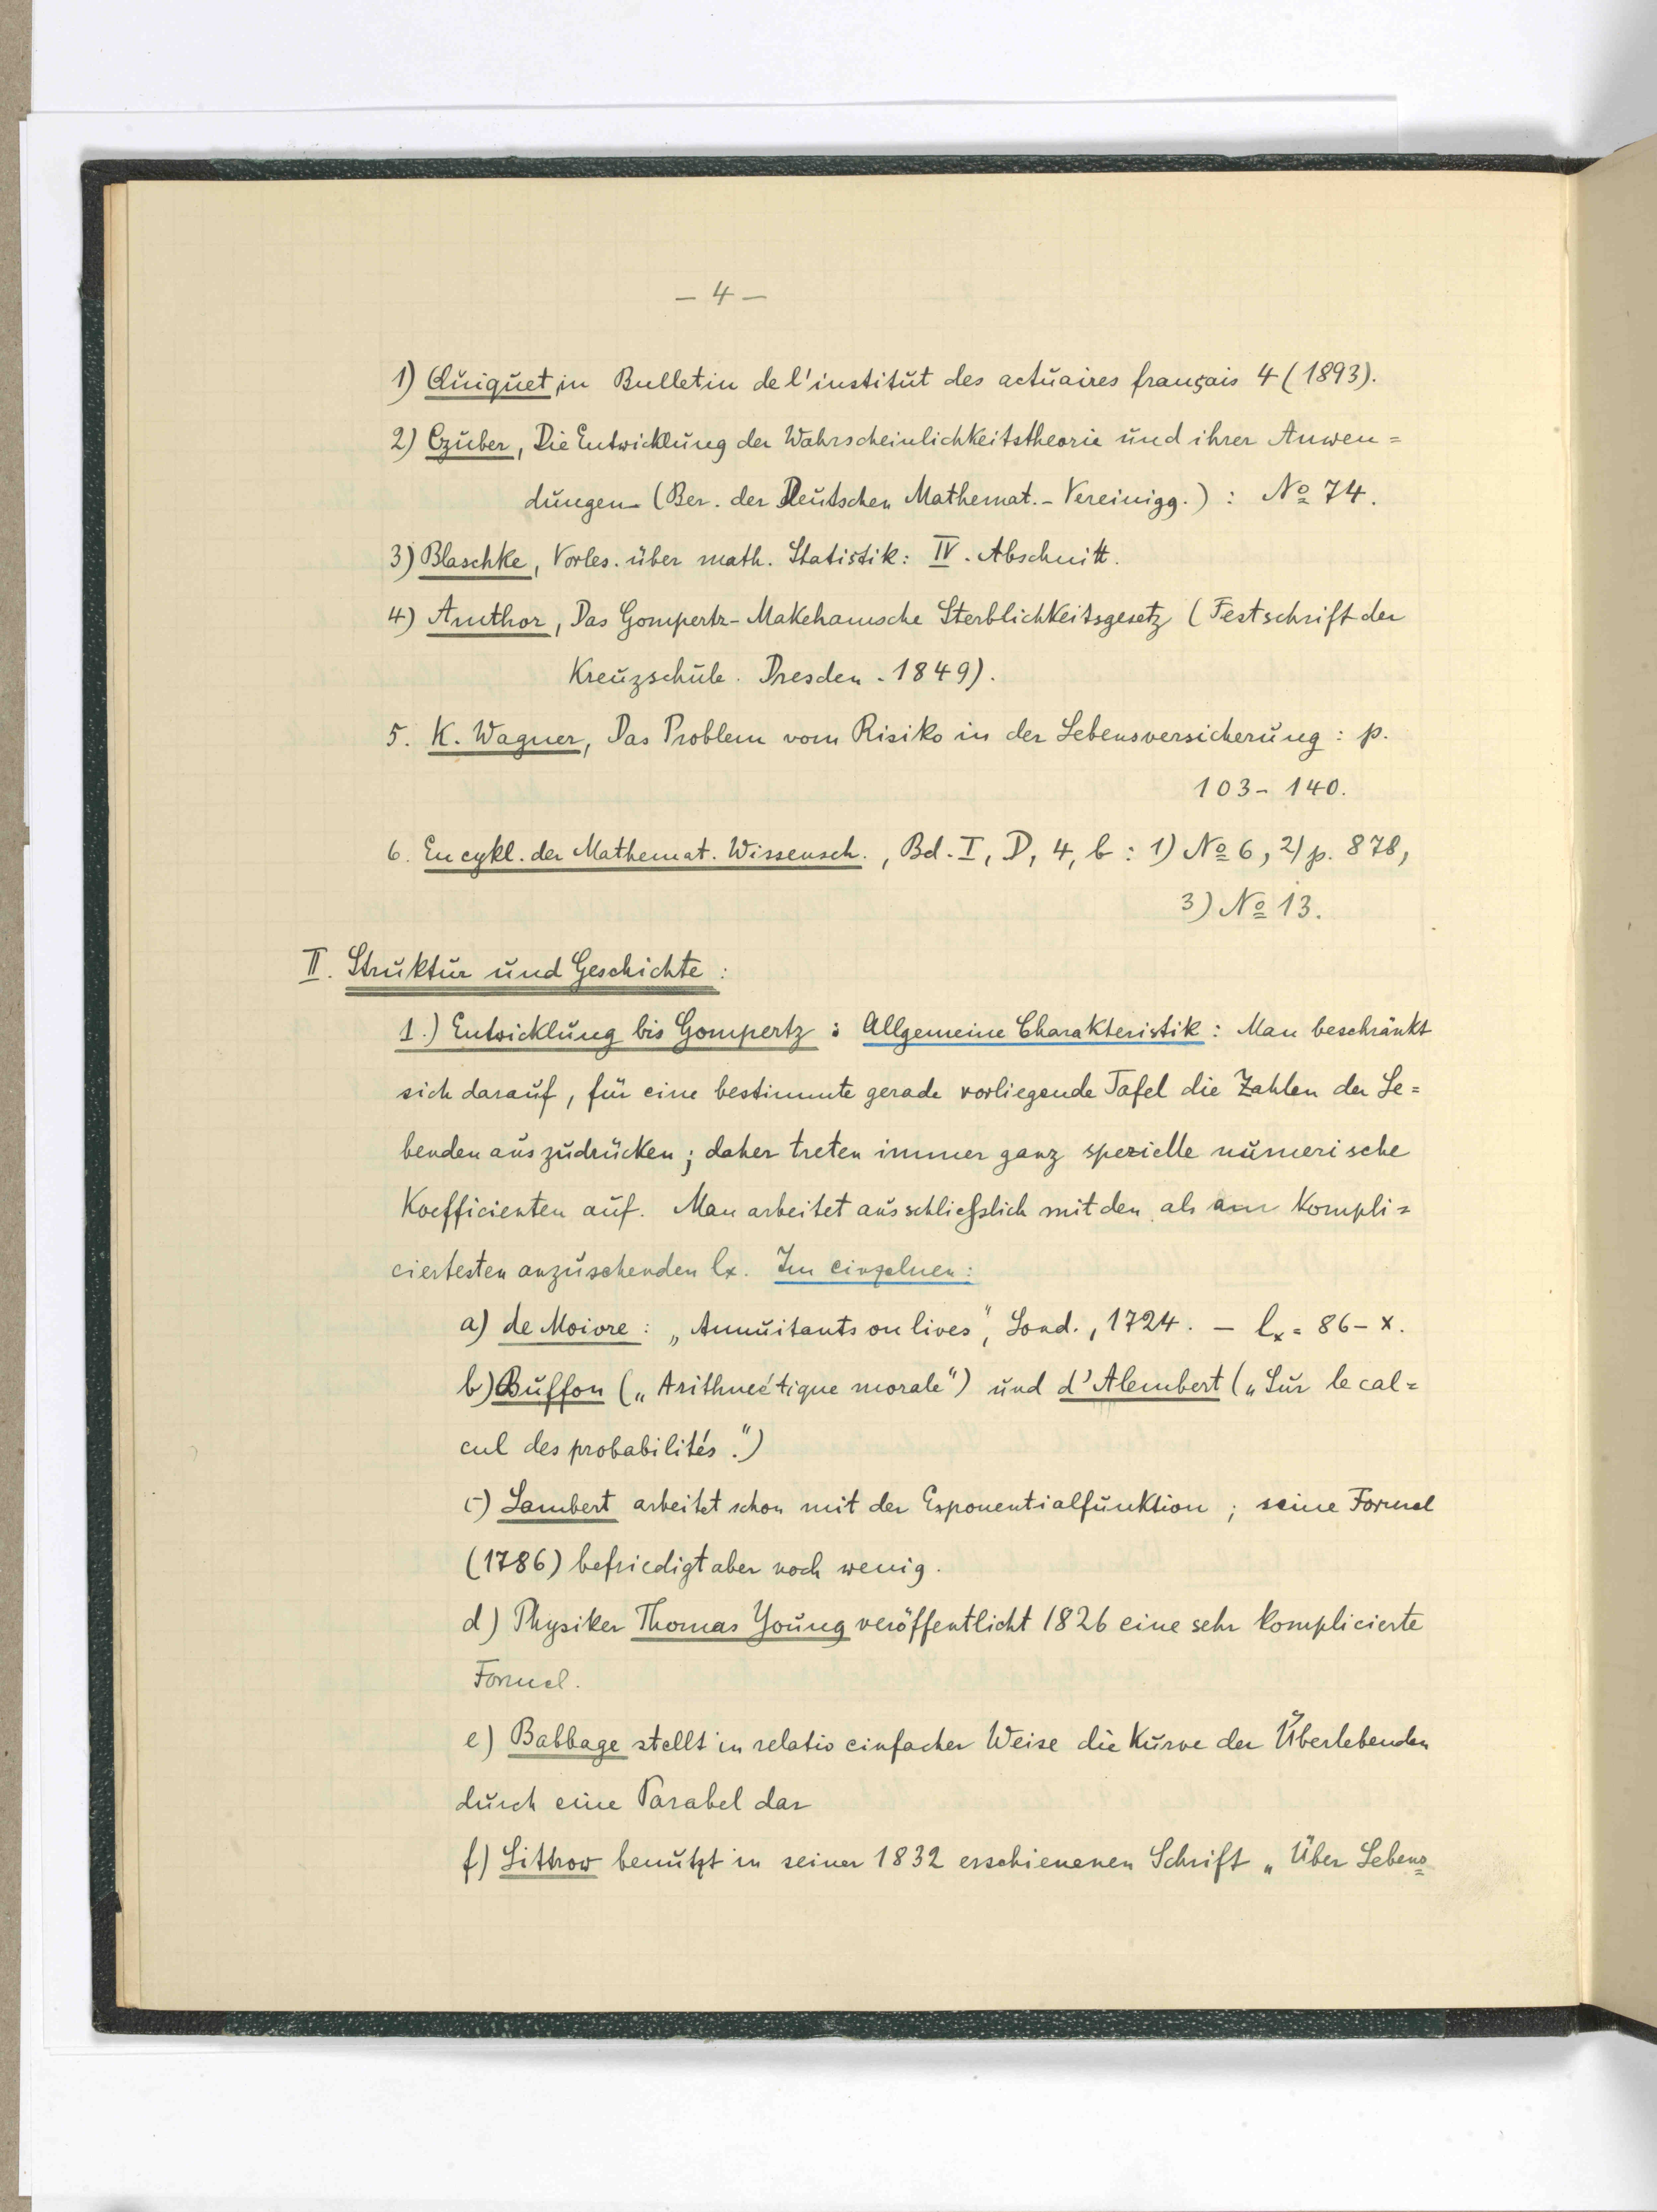 — 4 —
1) Quiquet, in Bulletin de l'institut des actuaires français 4 (1893).
2) Czuber, Die Entwicklung der Wahrscheinlichkeitstheorie und ihrer Anwen=
dungen (Ber. der Deutschen Mathemat. - Vereinigg.) : No 74.
3) Blaschke, Vorles. über math. Statistik: IV. Abschnitt.
4) Amthor, Das Gompertz-Makehamsche Sterblichkeitsgesetz (Festschrift der
Kreuzschule. Dresden. 1849).
5. K. Wagner, Das Problem vom Risiko in der Lebensversicherung : p.
103 - 140.
6. Encykl. der Mathemat. Wissensch., Bd. I, D, 4, b : 1) No 6, 2) p. 878,
3) No 13.
II. Struktur und Geschichte :
1.) Entwicklung bis Gompertz : Allgemeine Charakteristik : Man beschränkt
sich darauf, für eine bestimmte gerade vorliegende Tafel die Zahlen der Le=
benden auszudrücken; daher treten immer ganz spezielle numerische
Koefficienten auf. Man arbeitet ausschließlich mit den als am kompli=
ciertesten anzusehenden lx. Im einzelnen:
a) de Moivre : „Annuitants on lives", Lond., 1724. — lx = 86 - x.
b) Buffon („Arithmétique morale") und d'Alembert („Sur le cal=
cul des probabilités.")
c) Lambert arbeitet schon mit der Exponentialfunktion ; seine Formel
(1786) befriedigt aber noch wenig.
d) Physiker Thomas Young veröffentlicht 1826 eine sehr komplicierte
Formel.
e) Babbage stellt in relativ einfacher Weise die Kurve der Überlebenden
durch eine Parabel dar
f) Littrow benützt in seiner 1832 erschienenen Schrift „Über Lebens=